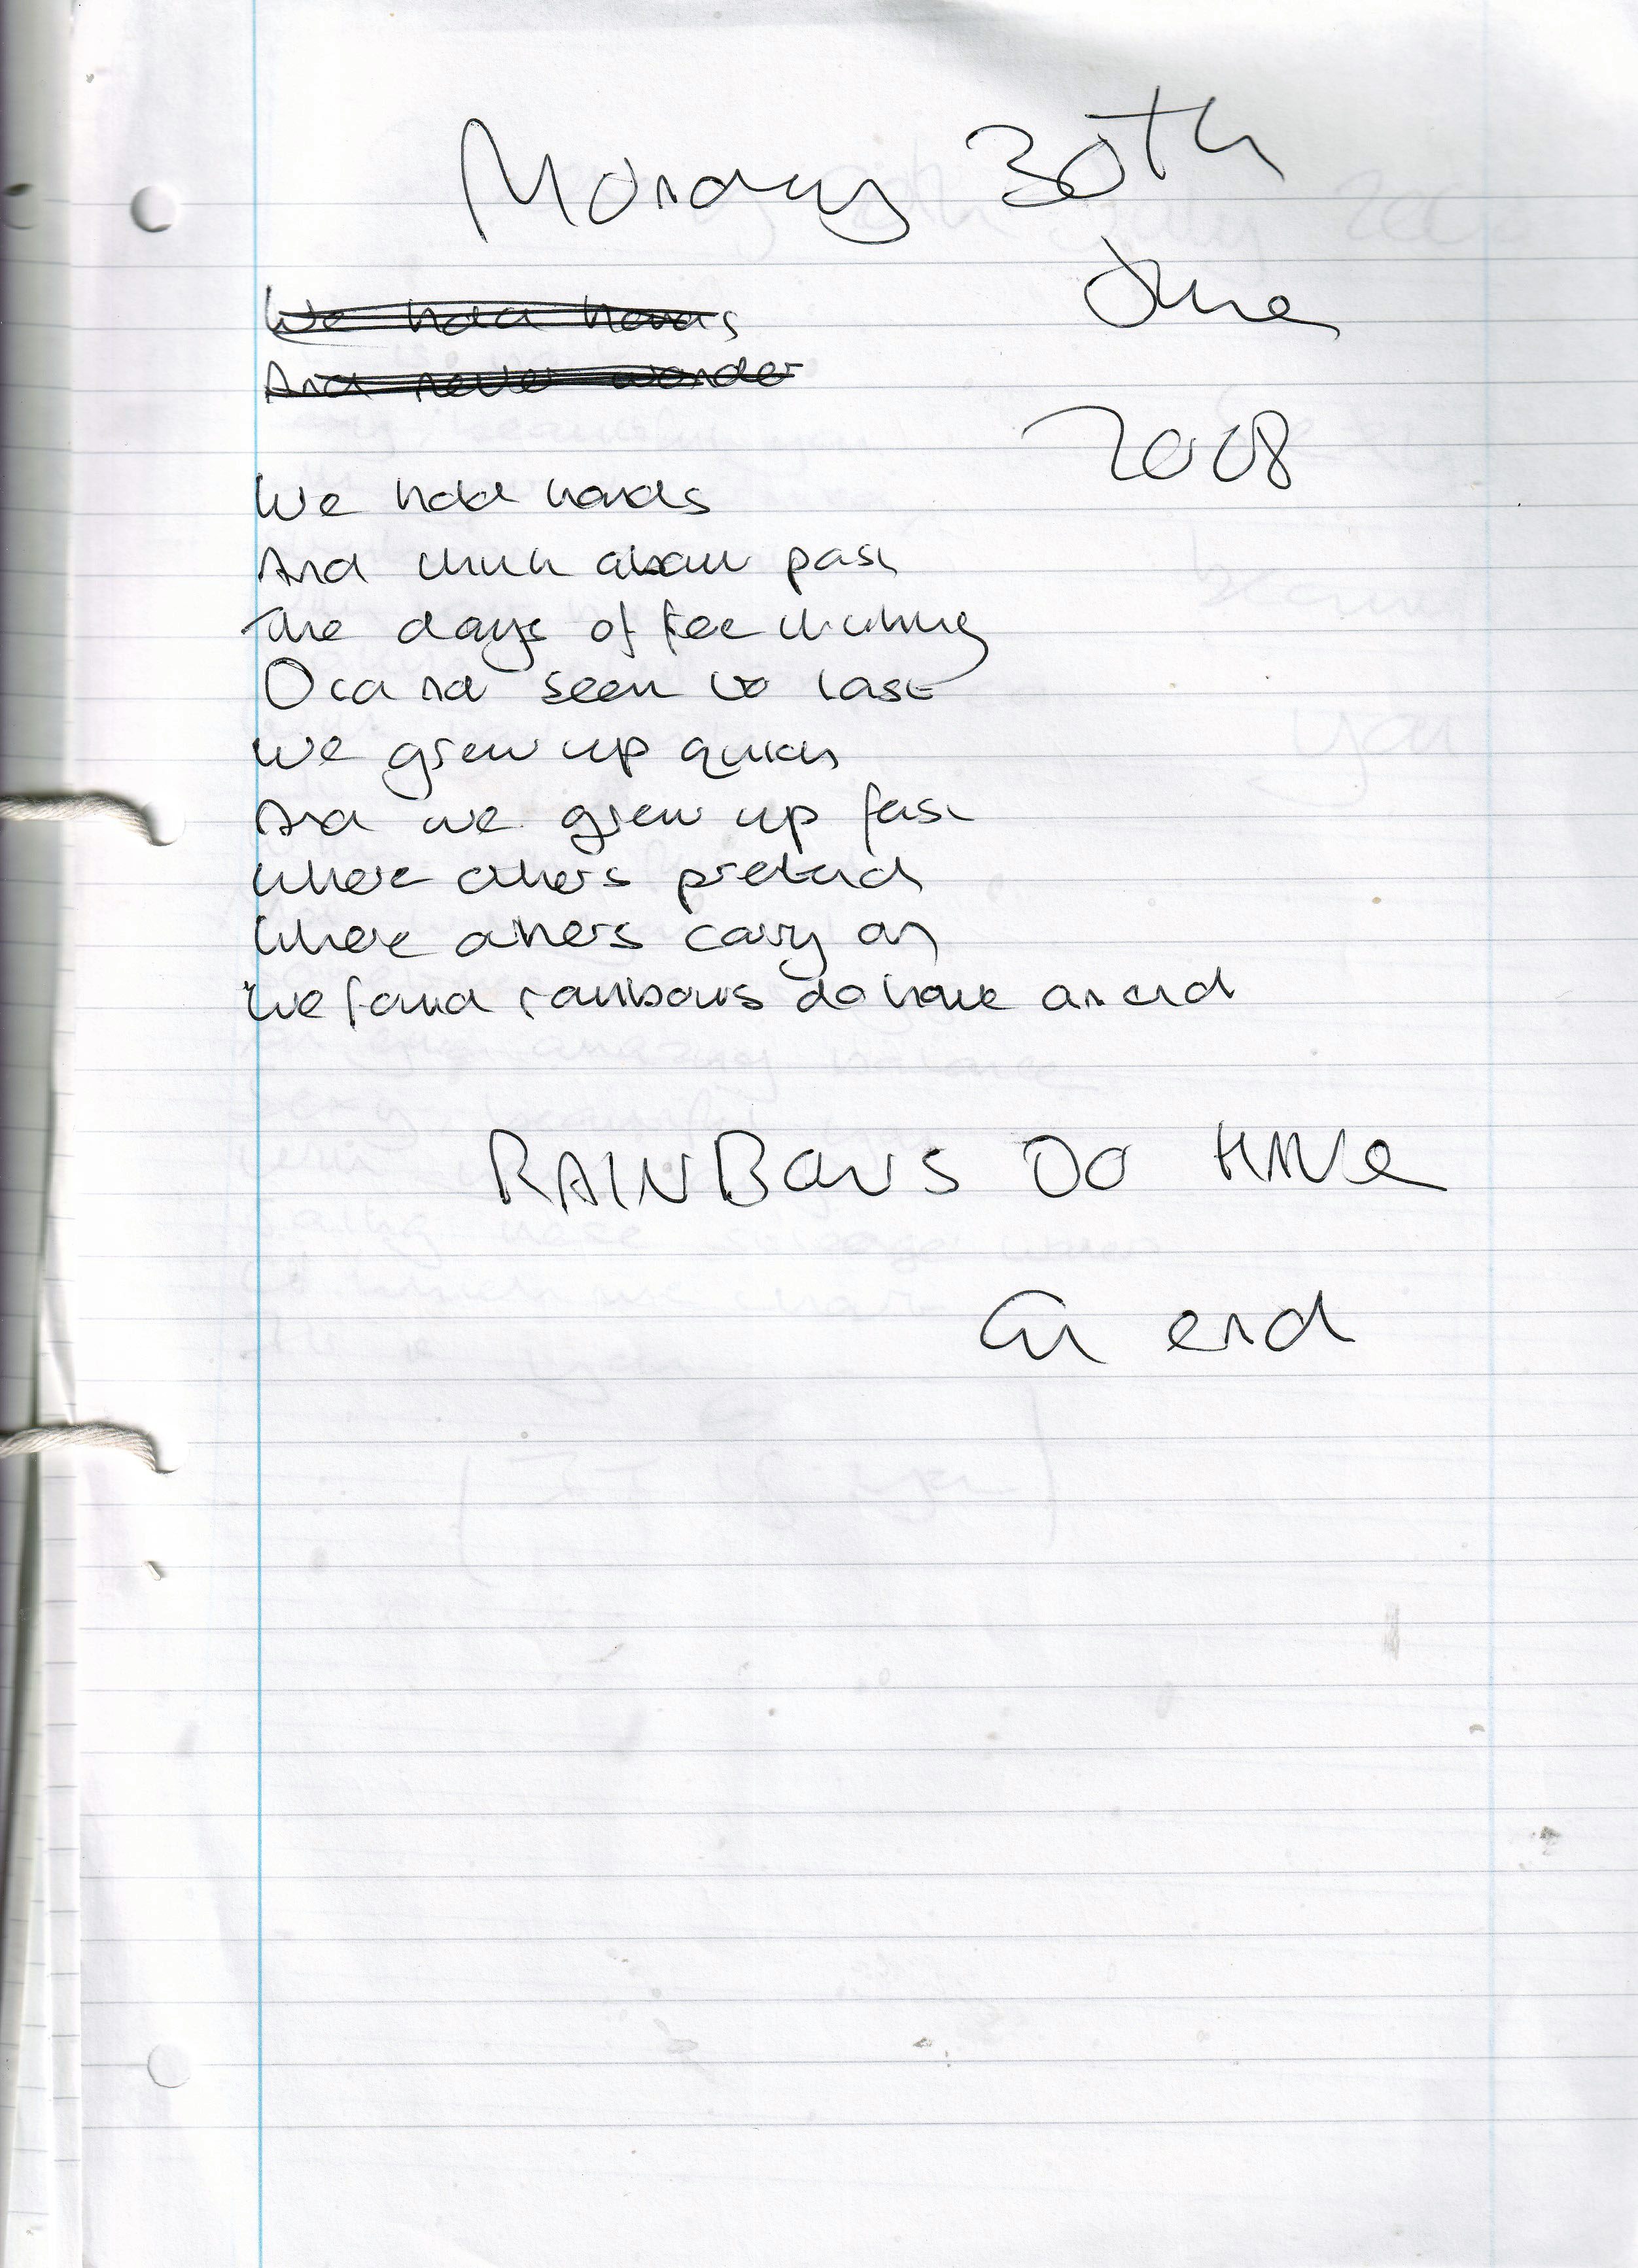 Monday 30th
June
We hold hands
And never wonder
2008
We hold hands
And think about past
The days of free thinking
Did not seem to last
We grew up quick
And we grew up fast
Where others pretend
Where others carry on
We found rainbows do have an end
RAINBOWS DO HAVE
an end